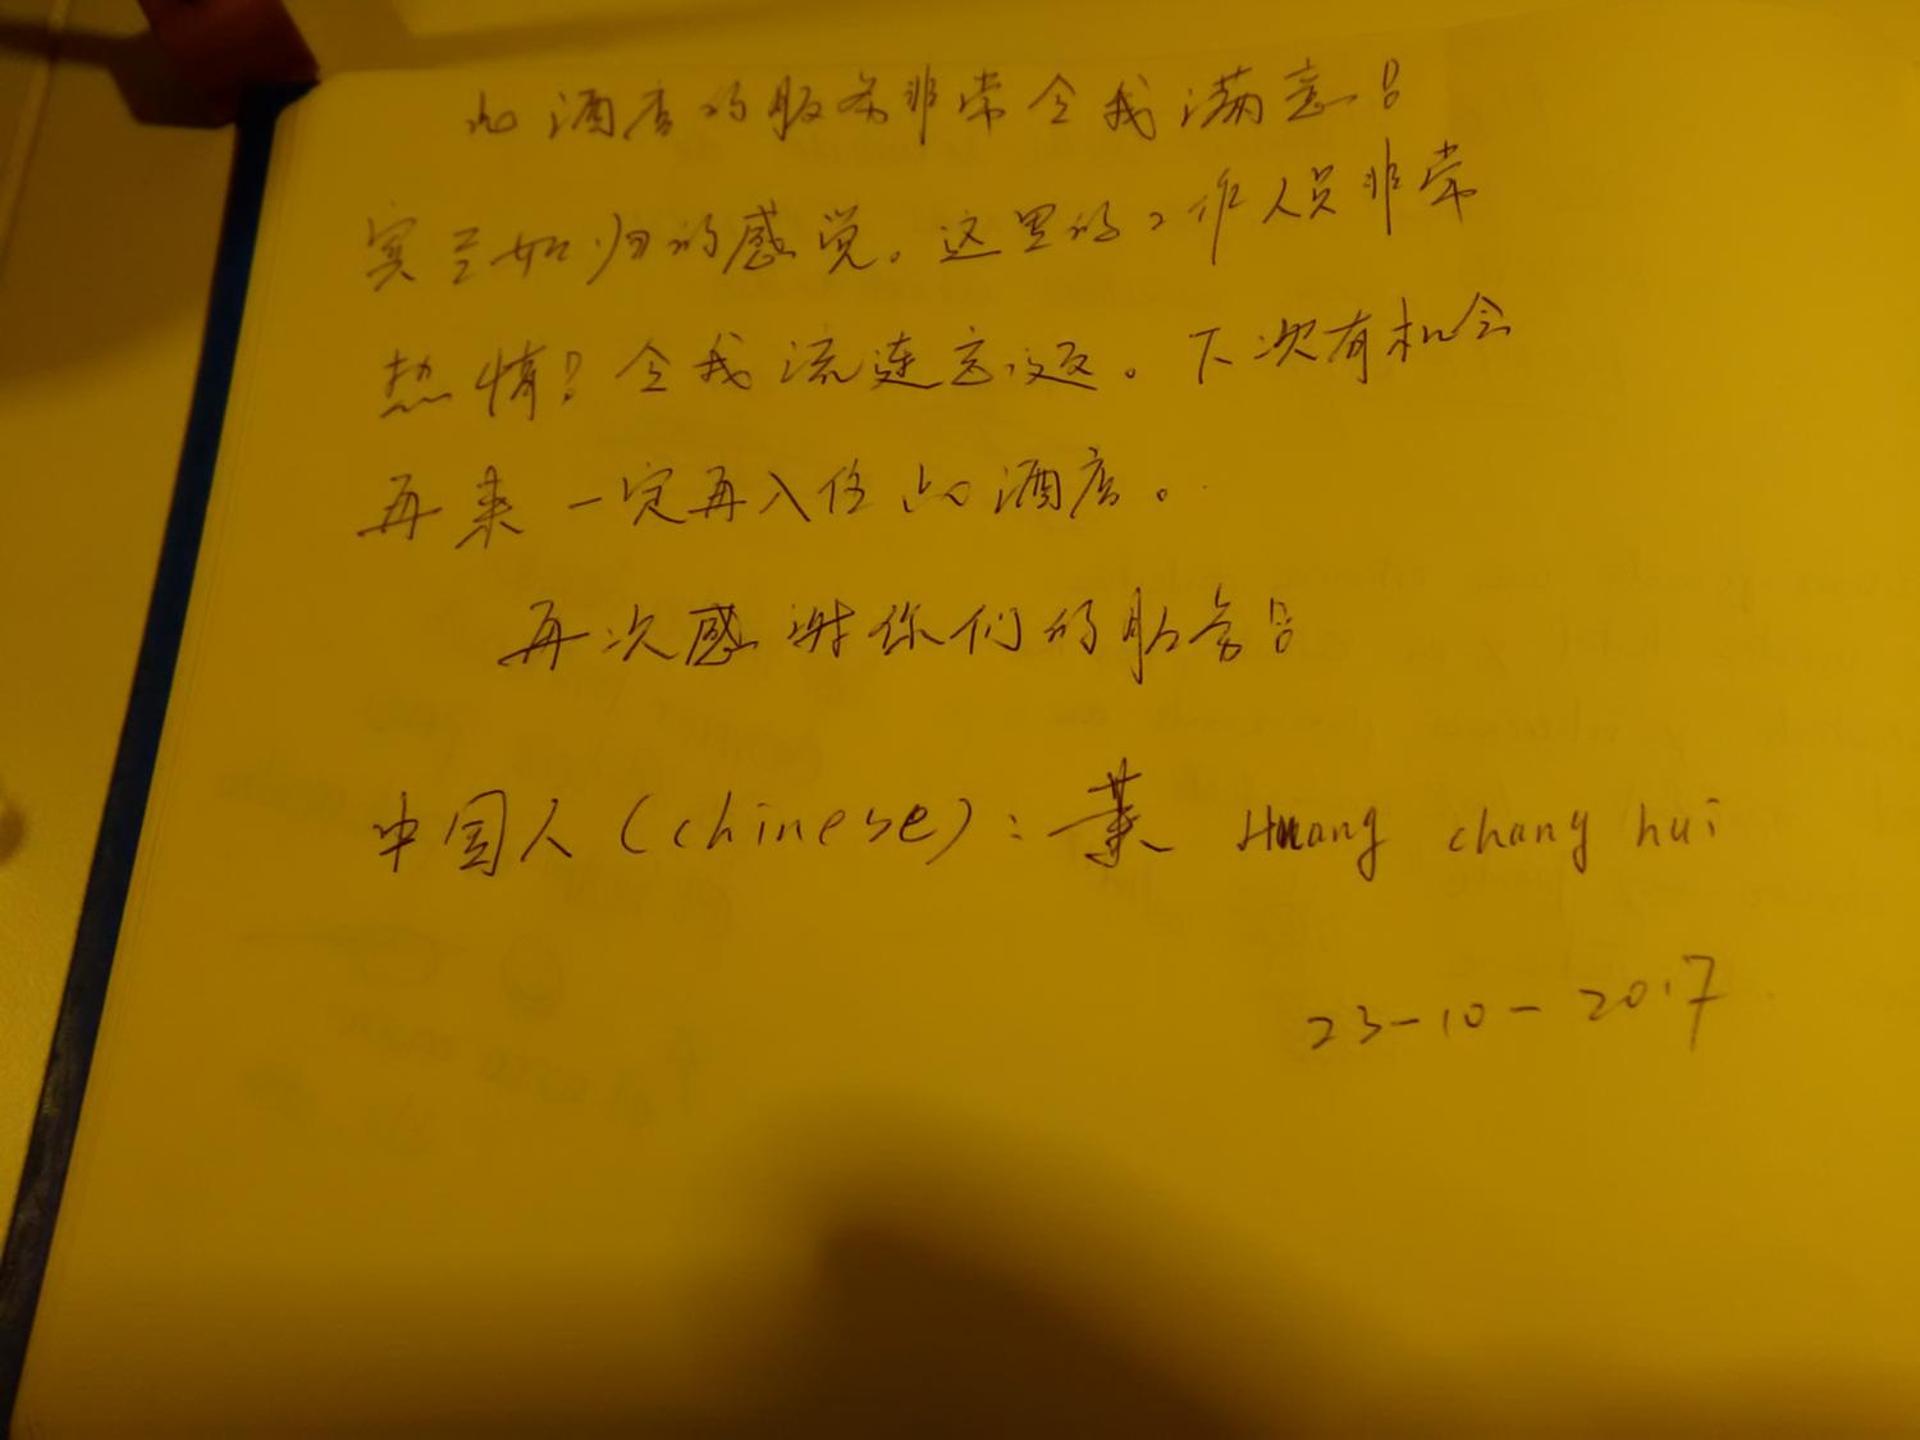 此酒店的服务非常令我满意!
宾至如归的感觉。这里的工作人员非常
热情!令我流连忘返。下次有机会
再来一定再入住此酒店。
再次感谢你们的服务!
中国人(chinese):黄 Huang chang hui
23-10-2017